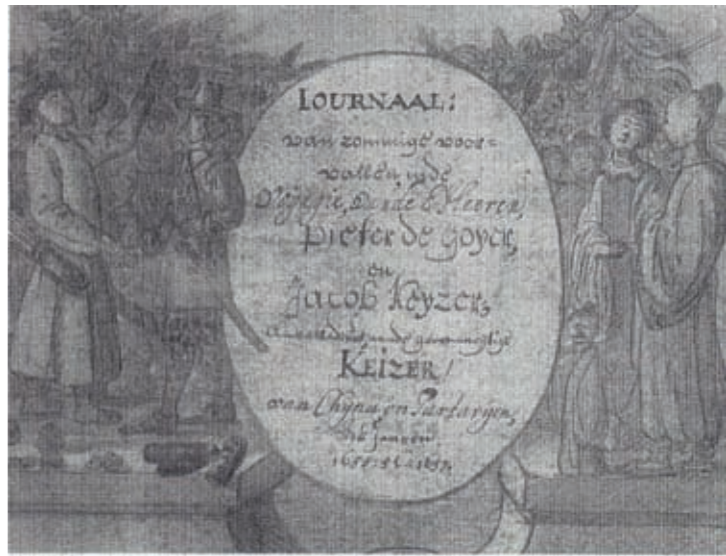 IOURNAAL:
van zommige voor=
vallen inde
Voyagie, vande E Heeren,
Pieter de Goyer,
en
Jacob Keyzer,
aen den grootmagtige
KEIZER/
van Chyna en Tartaryen,
jaaren
1655:56:1657.